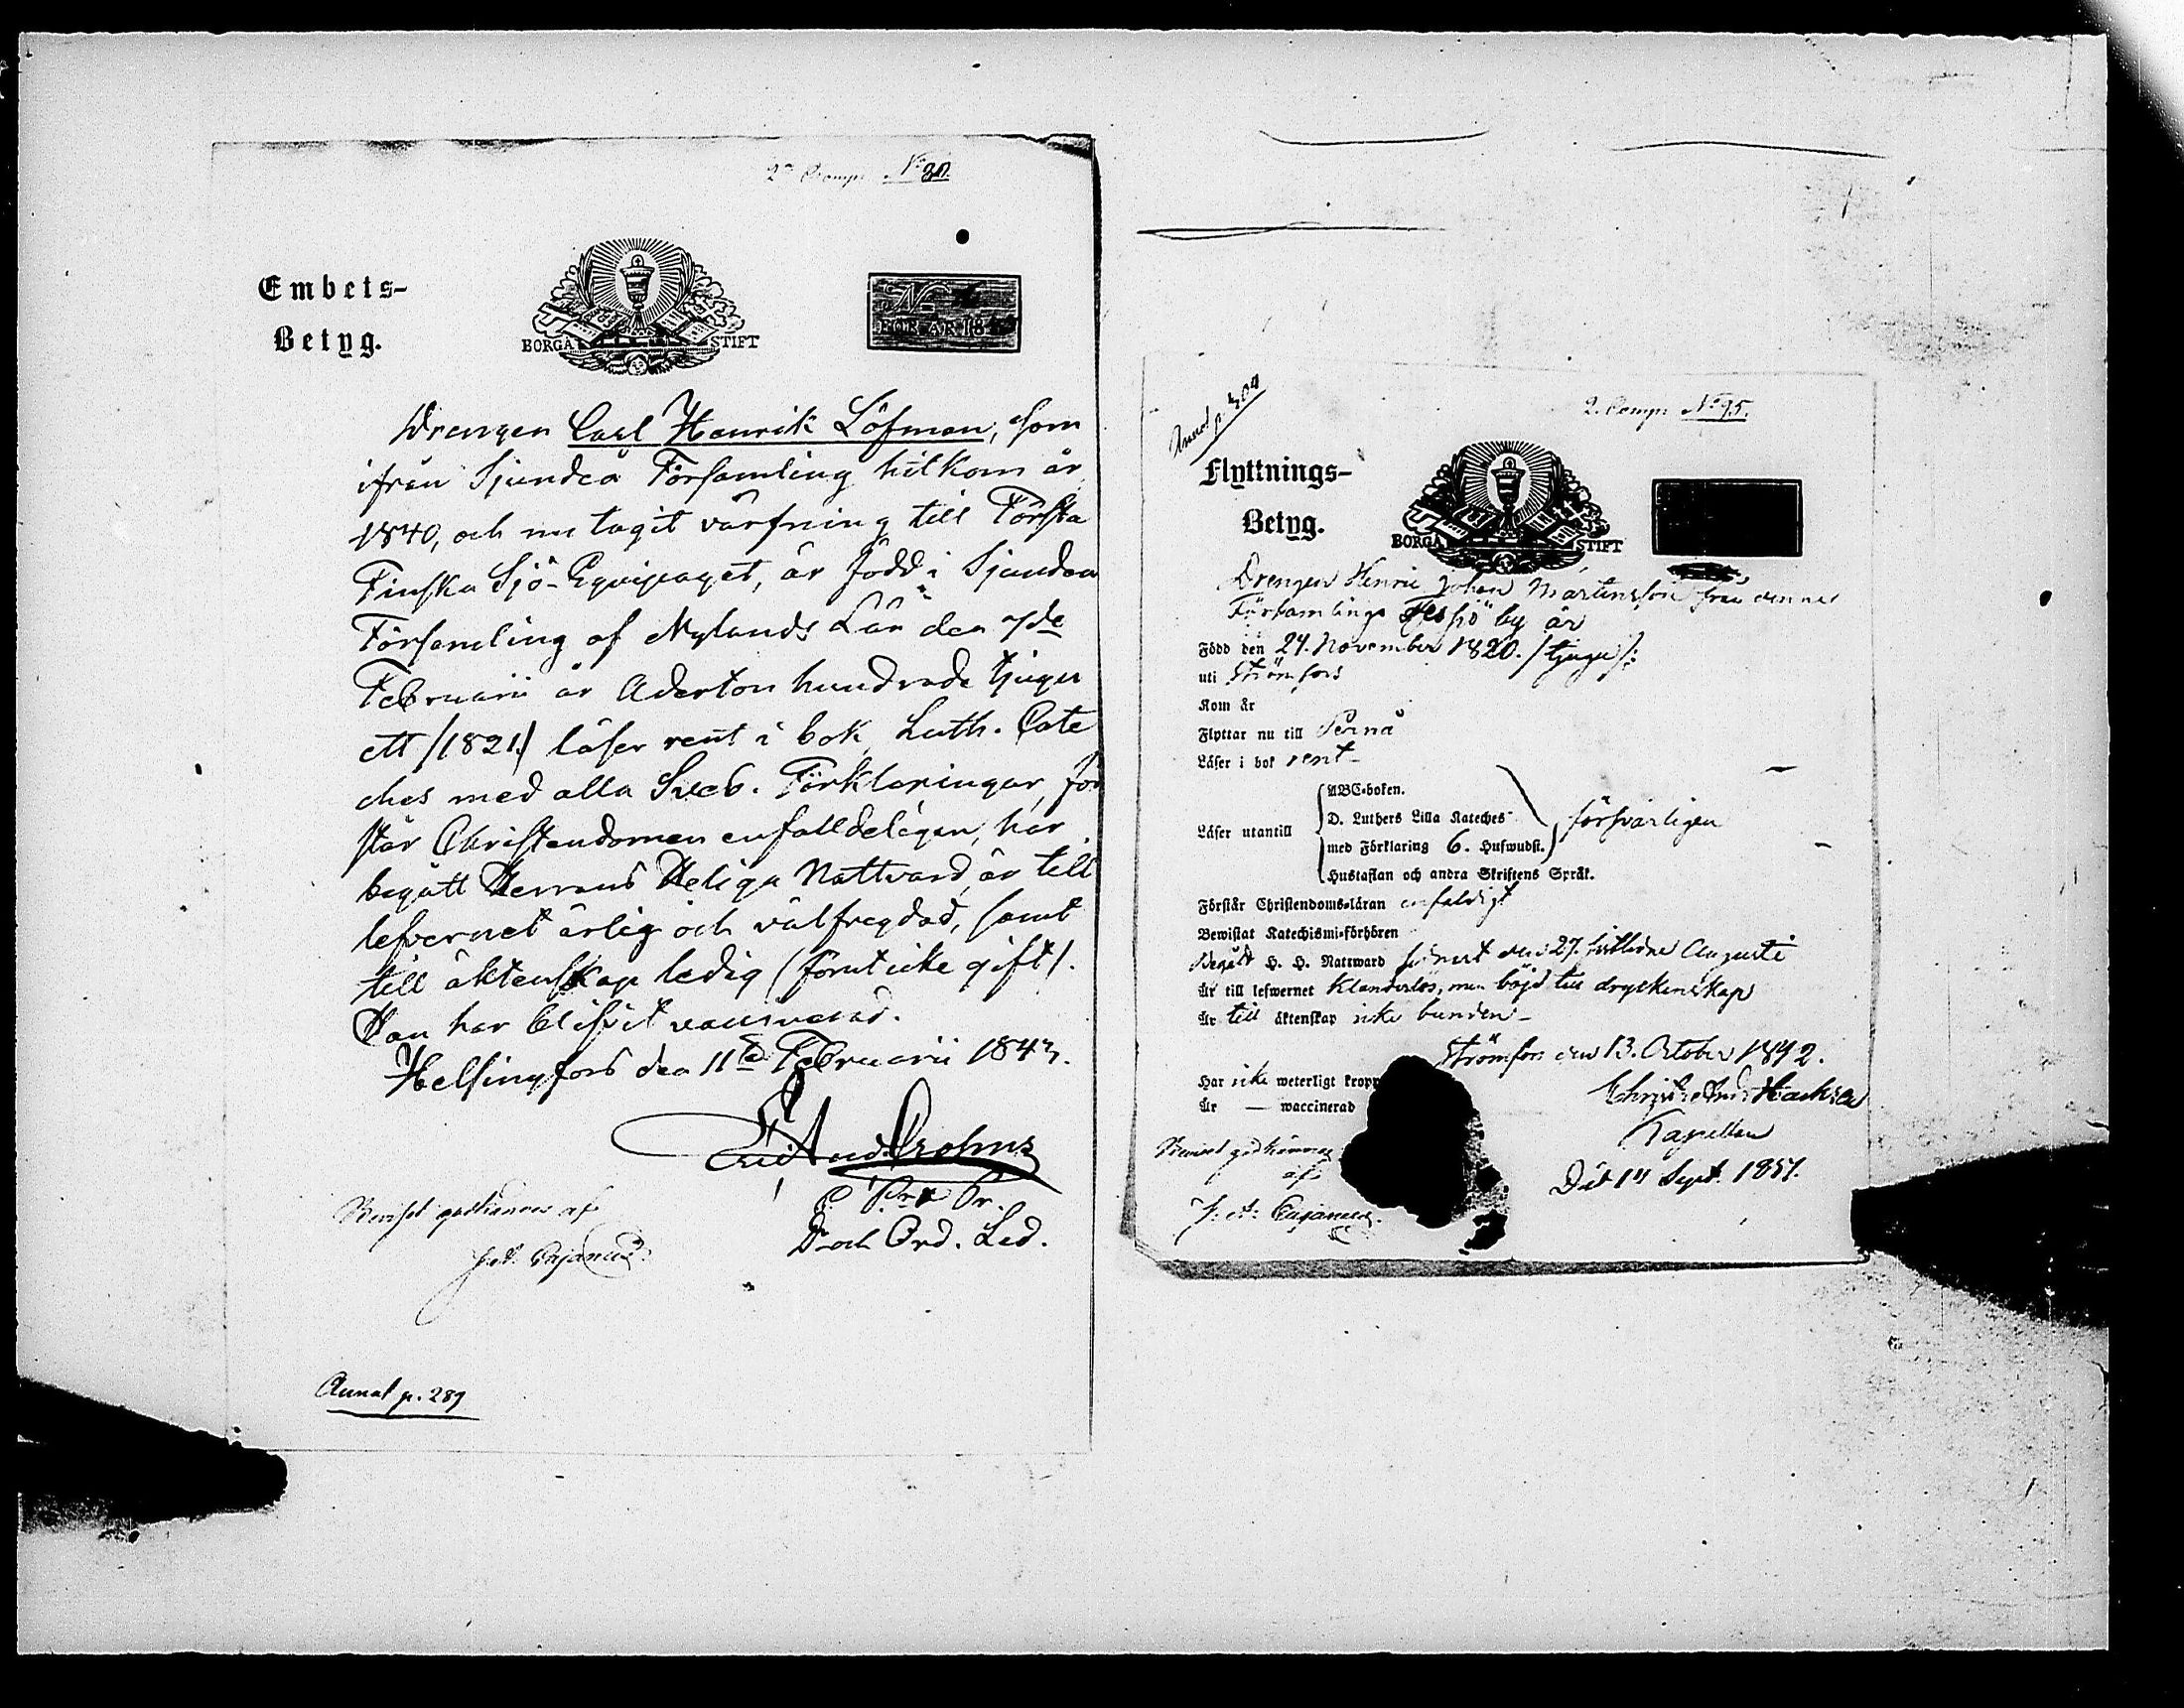 2a Comp. No 90.
Embets-
Betyg.
BORGÅ STIFT
No
FÖR ÅR 18
Drengen Carl Henrik Löfman, som
ifrån Sjundeå Församling hitkom år
1840, och nu tagit värfning till Första
Finska Sjö-Equipaget, är född i Sjundea
Församling af Nylands Län den 7de
Februarii år Aderton hundrade tjugu
ett /1821./ läser rent i bok, Luth. Cate
ches med alla Sveb. Förklaringar, för
står Christendomen enfalldeligen, har
begått Herrans Heliga Nattvard, är till
lefvernet ärlig och välfregdad, samt
till äktenskap ledig (förut icke gift).
Han har blifvit vaccinerad.
Helsingfors den 11te Februarii 1843.
Crohns
P. Pr.
D och Ord. Led.
Beviset godkännes af
Cajanus
Annot p. 289
Annot p.
2. Comp. No 95.
Flyttnings-
Betyg.
BORGÅ STIFT
Drengen Henric Johan Martinsson från denne
Församlings by är
Född den 24. November 1820. /:tjugu/:
uti Strömfors
Kom år
Flyttar nu till Pernå
Läser i bok rent
Läser utantill
ABC-boken.
D. Luthers Lilla Kateches
med Förklaring 6. Hufwudst.
Hustaflan och andra Skriftens Språk.
försvarligen
Förstår Christendoms-läran enfaldigt
Bewistat Katechismi-förhören
Begått H. H. Nattward senast den 27. sistledne Augusti
Är till lefwernet klanderlös, men böjd till dryckenskap
Är till äktenskap icke bunden
Strömfors den 13. October 1842.
Har icke weterligt kropp
Är — waccinerad
Kapellan
Död 14 Sept. 1857.
Beviset godkännes
af
J. A. Cajanus.